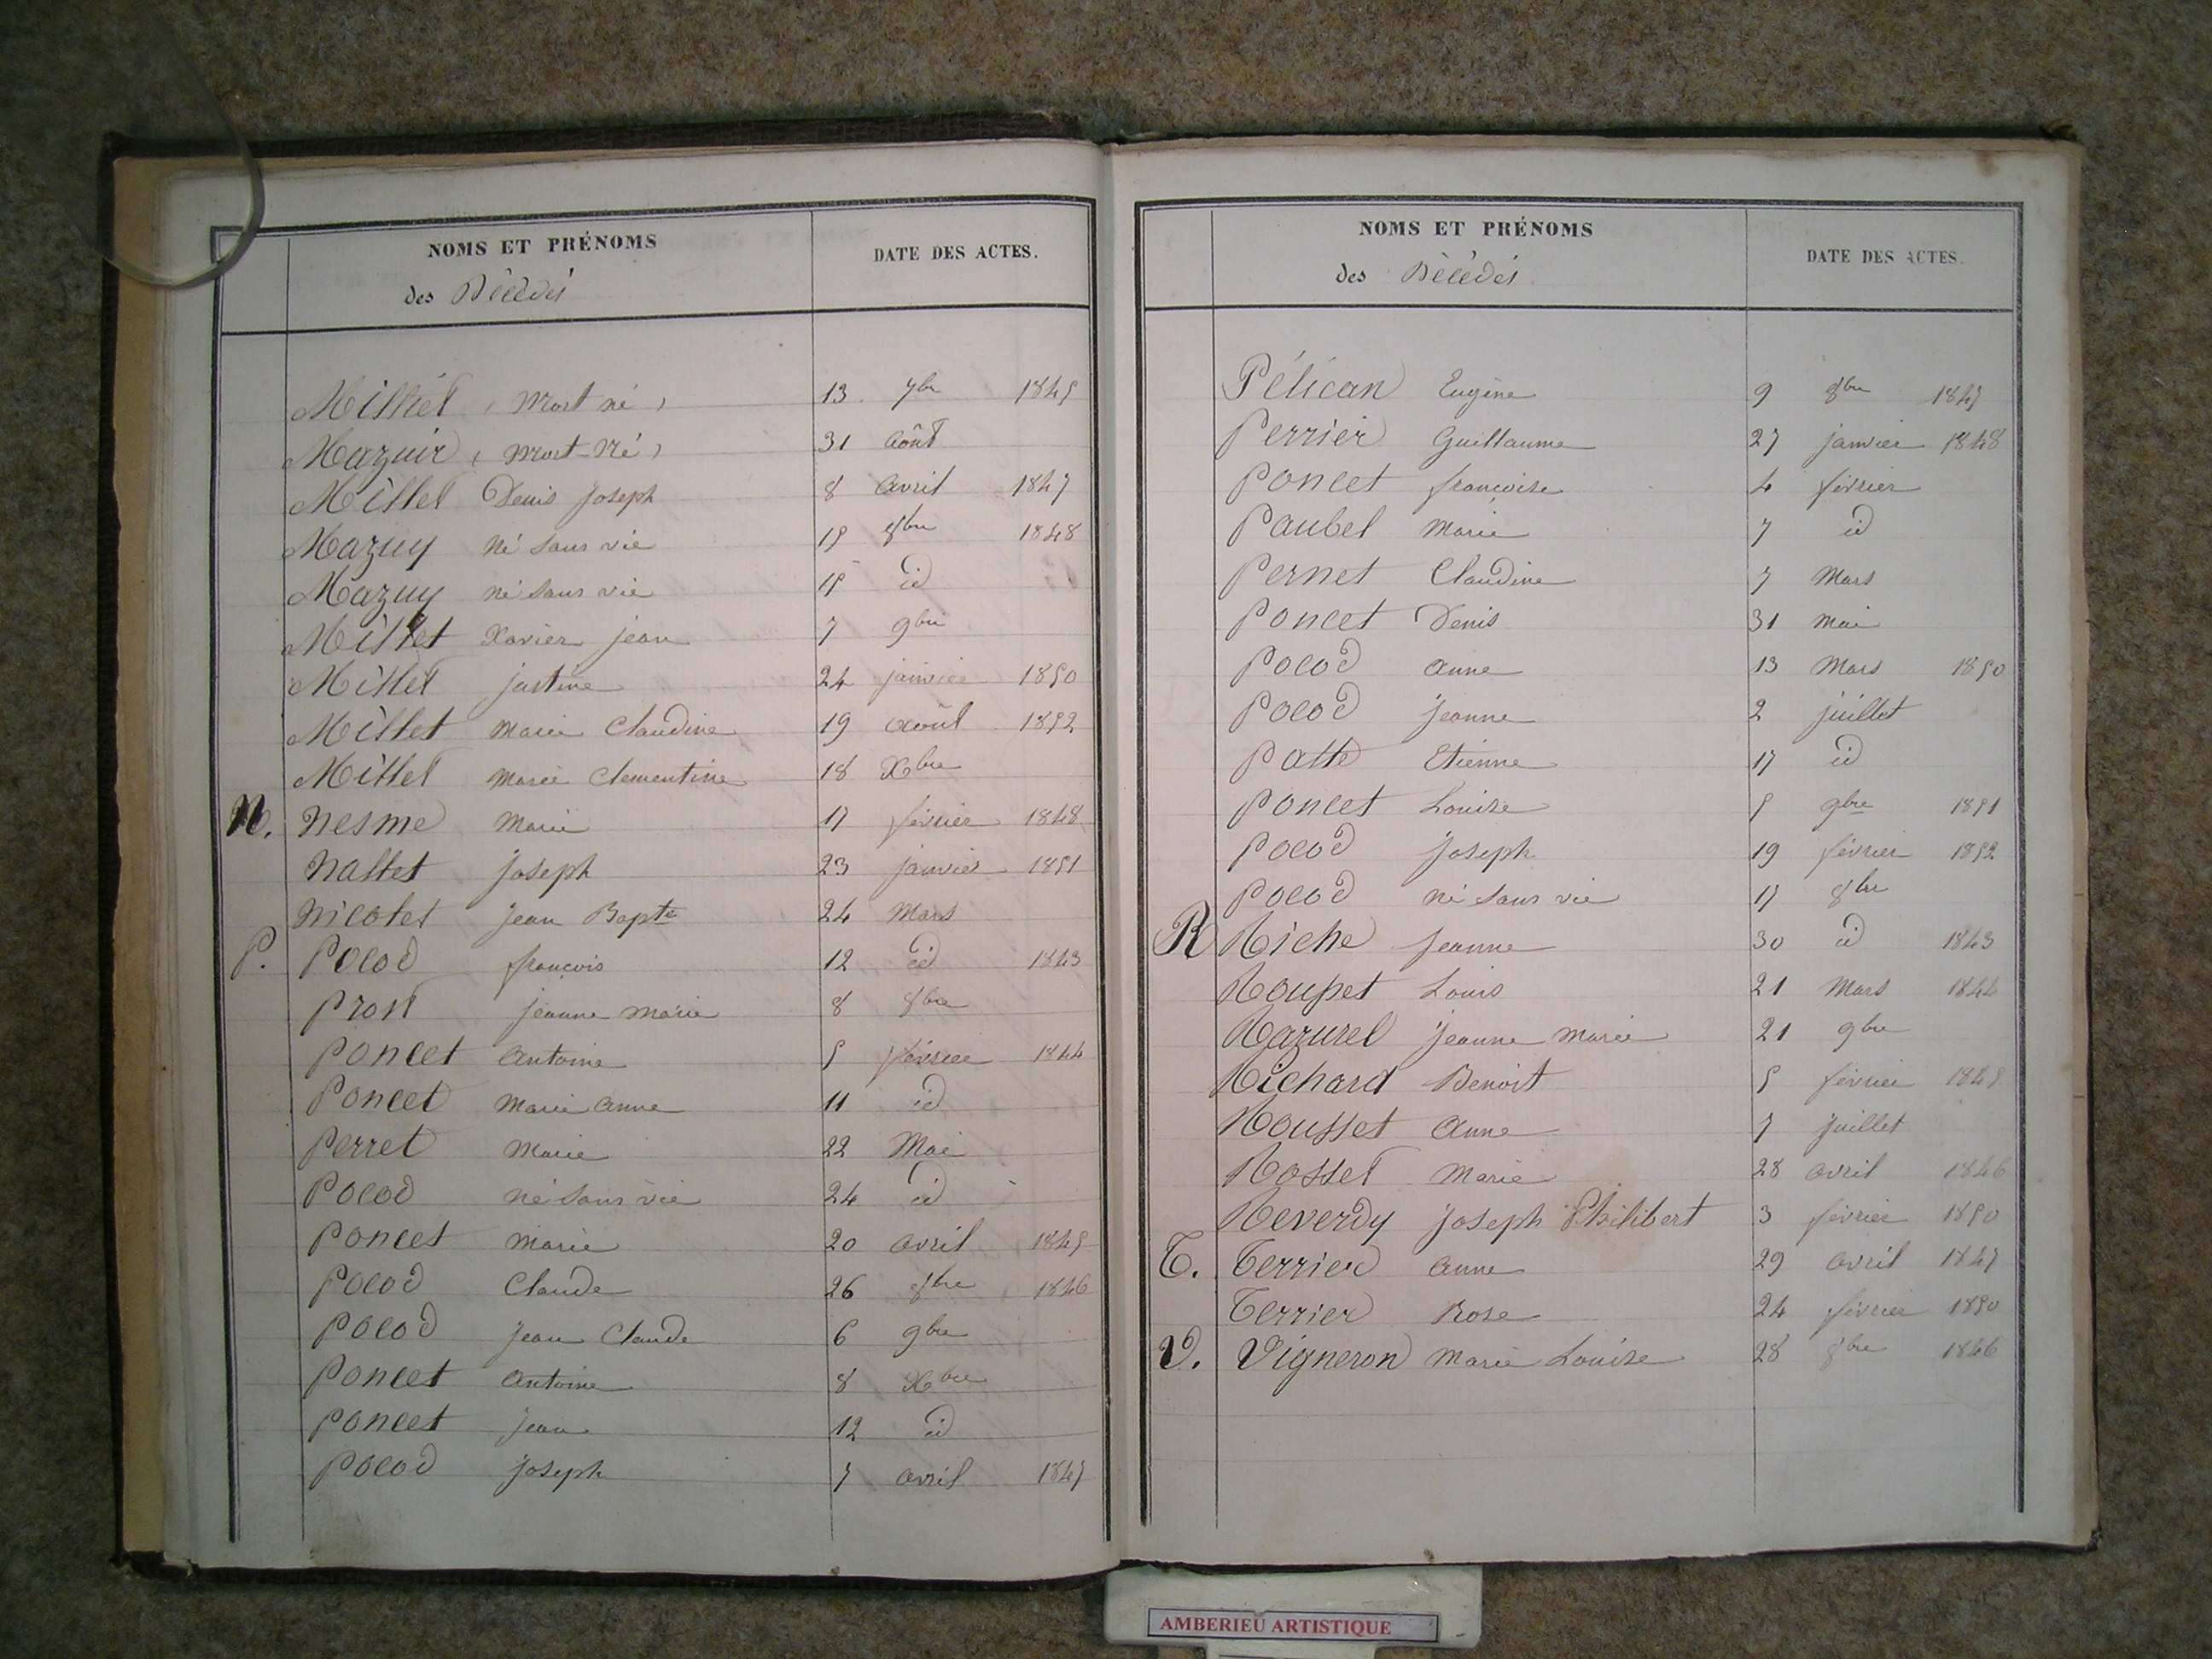 NOMS ET PRÉNOMS DATE DES ACTES.
des Décédés
Milliet (Mort né) 13 7bre 1845
Mazuir (Mort-Né) 31 Août
Millet Denis Joseph 8 Avril 1847
Mazuy Né sans vie 15 8bre 1848
Mazuy né sans vie 15 id
Millet Xavier jean 7 9bre
Millet justine 24 janvier 1850
Millet Marie Claudine 19 Août 1852
Millet Marie Clementine 18 Xbre
N. Nesme Marie 17 février 1848
Nallet Joseph 23 janvier 1851
Nicolet Jean Bapte 24 Mars
P. Pocod françois 12 id 1843
Prost jeanne Marie 8 8bre
Poncet Antoine 5 février 1844
Poncet Marie Anne 11 id
Perret Marie 22 Mai
Pocod né sans vie 24 id
Poncet Marie 20 Avril 1845
Pocod Claude 26 8bre 1846
Pocod Jean Claude 6 9bre
Poncet Antoine 8 Xbre
Poncet Jean 12 id
Pocod Joseph 7 Avril 1847
NOMS ET PRÉNOMS DATE DES ACTES.
des Décédés
Pélican Eugène 9 8bre 1847
Perrier Guillaume 27 janvier 1848
Poncet françoise 4 février
Paubel Marie 7 id
Pernet Claudine 7 Mars
Poncet Denis 31 Mai
Pocod Anne 13 Mars 1850
Pocod Jeanne 2 juillet
Patte Etienne 17 id
Poncet Louise 5 9bre 1851
Pocod Joseph 19 février 1852
Pocod né sans vie 17 8bre
R Riche Jeanne 30 id 1843
Roupet Louis 21 Mars 1844
Razurel Jeanne Marie 21 9bre
Richard Benoit 5 février 1845
Rousset Anne 7 Juillet
Rosset Marie 28 Avril 1846
Reverdy Joseph Philibert 3 février 1850
T. Terrier Anne 29 Avril 1847
Terrier Rose 24 février 1850
V. Vigneron Marie Louise 28 8bre 1846
AMBERIEU ARTISTIQUE